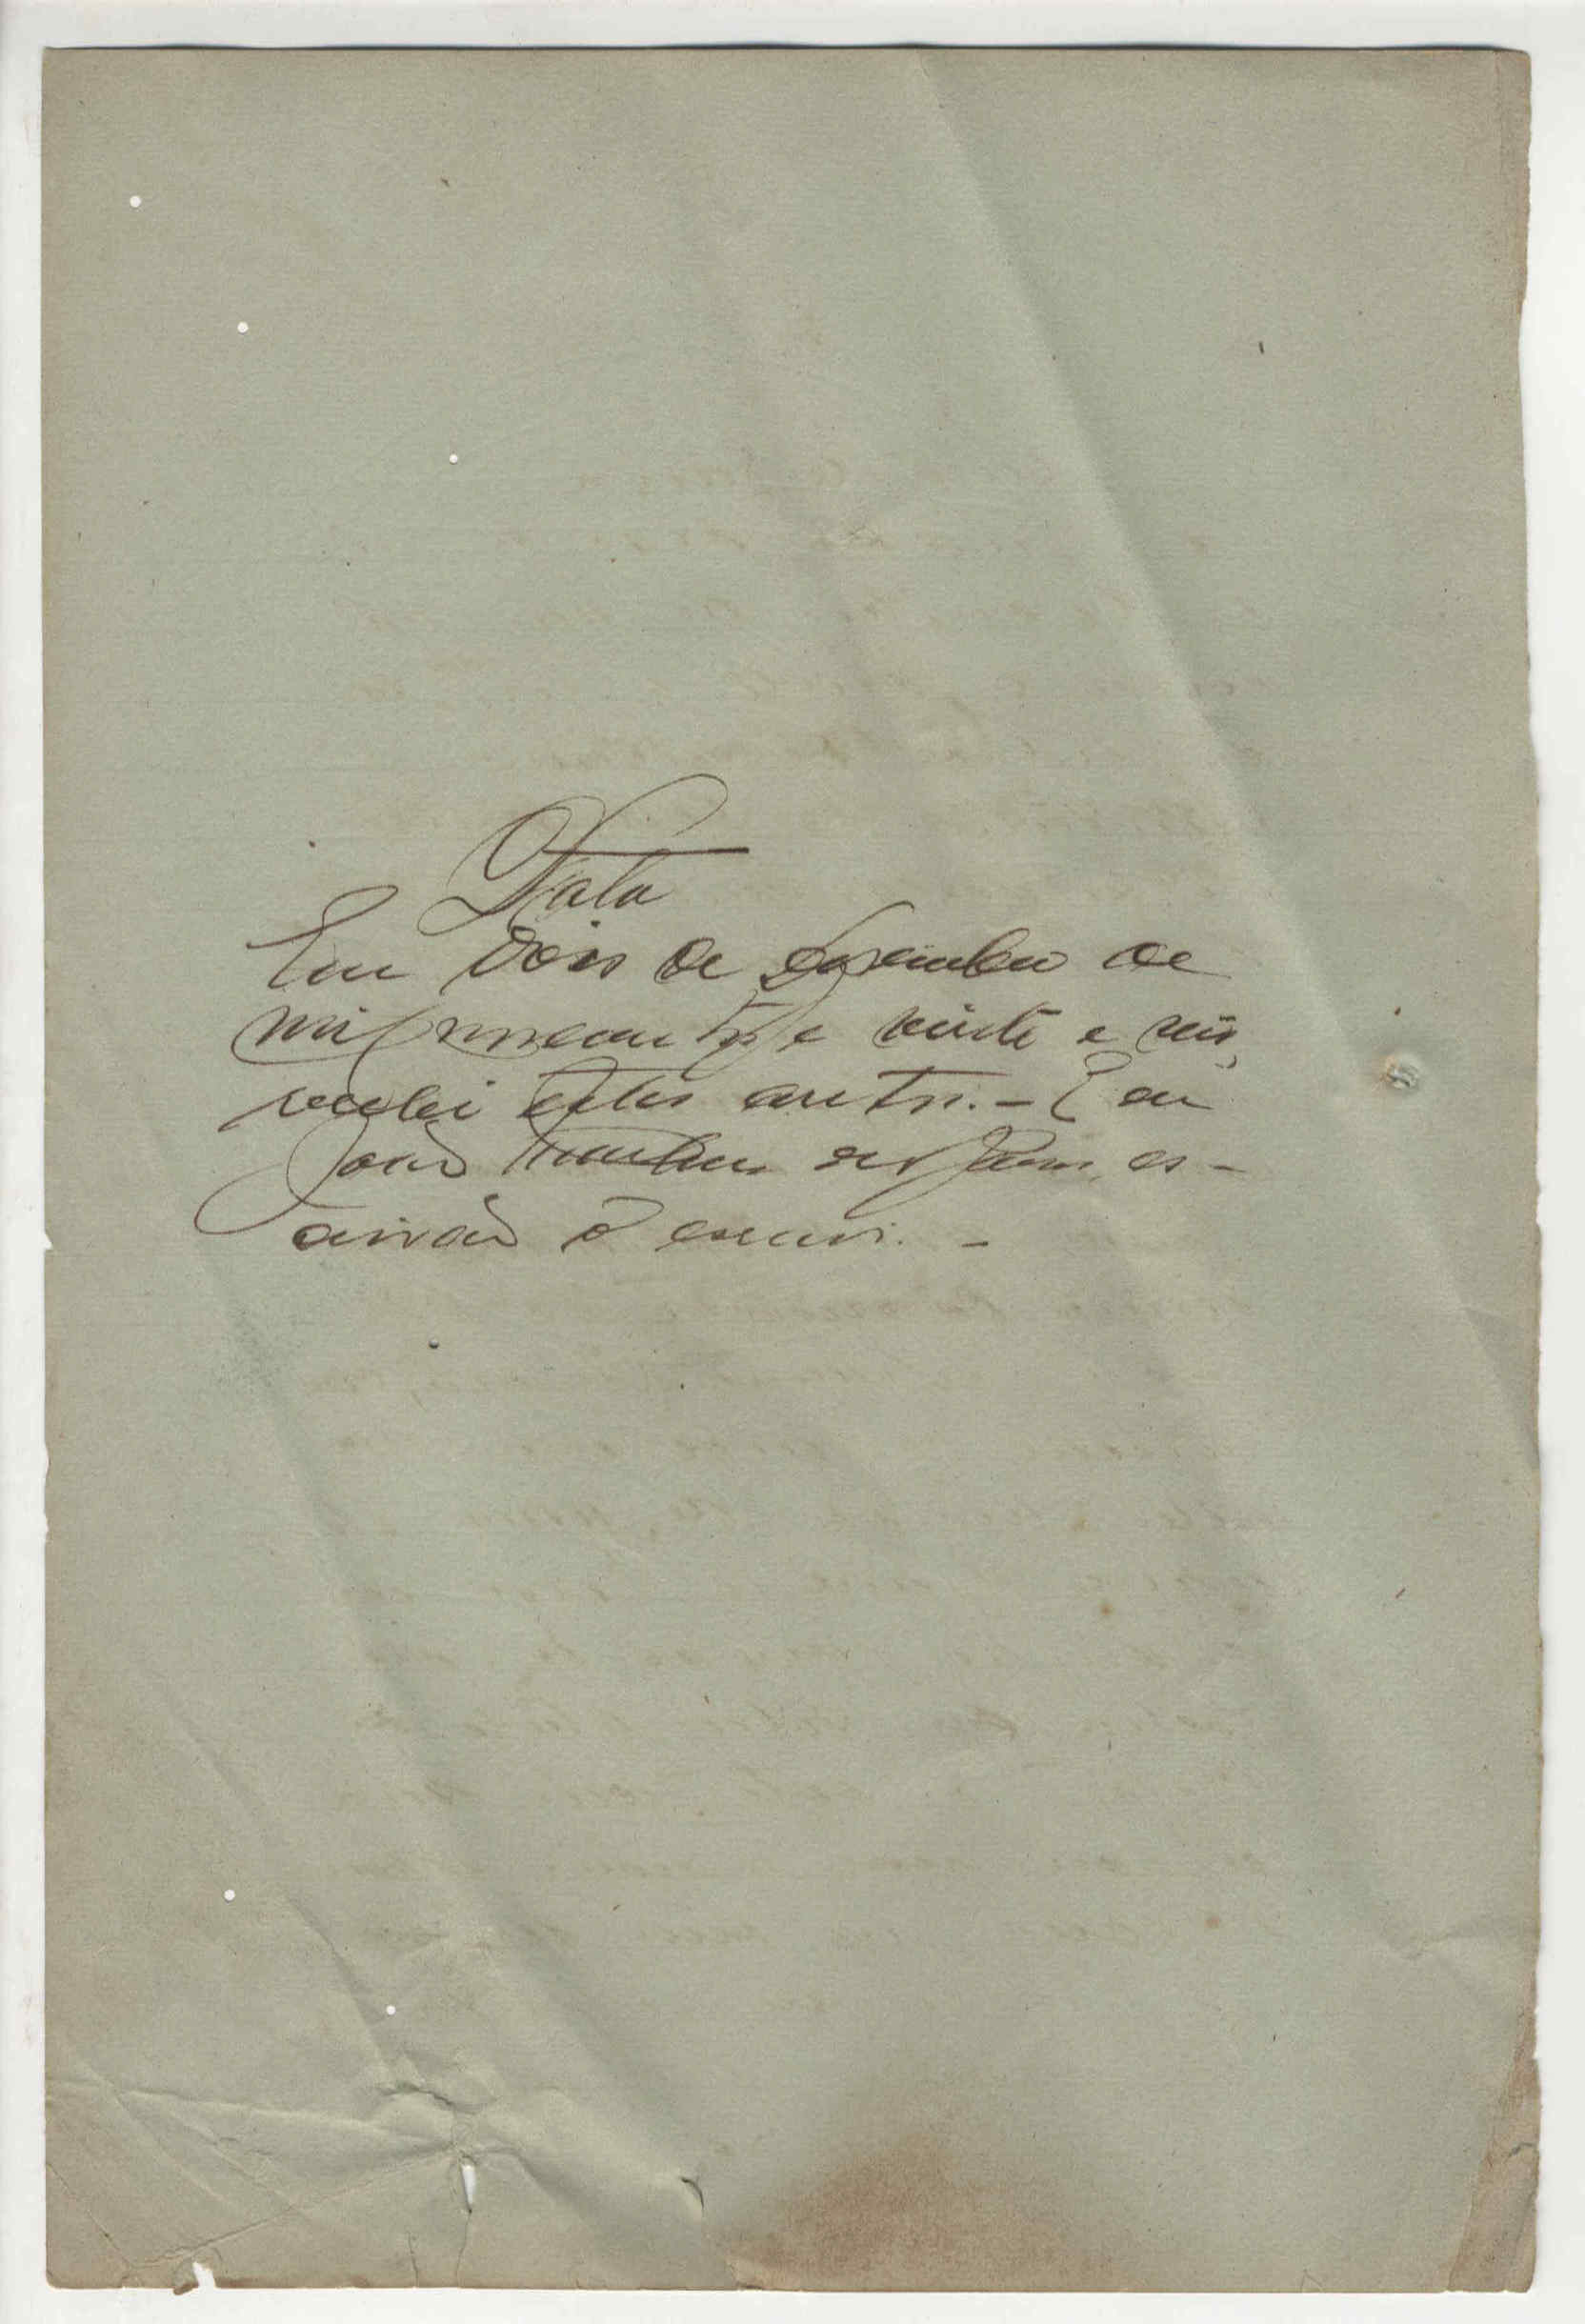 Data
Em dois de Dezembro de
mil novecentos e vinte e seis,
recebi estes autos. - E eu
João es-
crivão o escrevi. -